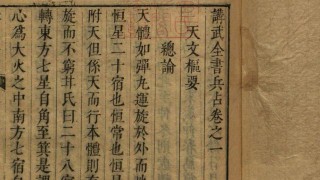 講武全書兵占卷之一
天文樞要
總論
天體如彈丸運旋於外而地
恒星二十宿也恒常也恒星
附天但係天而行本體則有
旋而不窮廾氏曰二十八宿
轉東方七星自角至箕是謂
心為大火之中南方七宿自